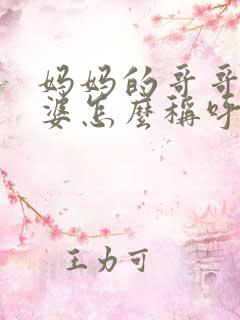 妈妈的哥哥
婆怎麼稱呼
王力可